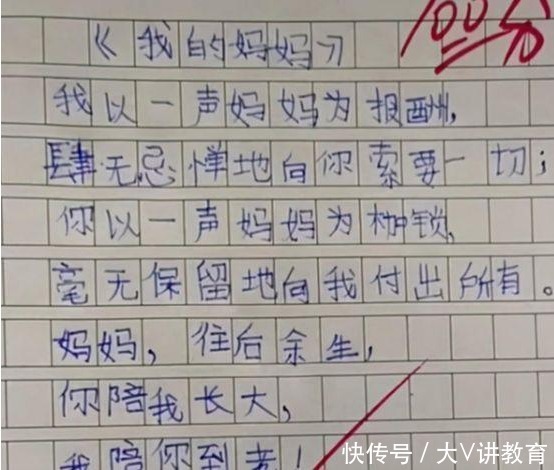 《我的妈妈》
100分
我以一声妈妈为报酬,
肆无忌惮地向你索要一切;
你以一声妈妈为枷锁,
毫无保留地向我付出所有。
妈妈,往后余生,
你陪我长大,
我陪你到老!
快传号 / 大V讲教育